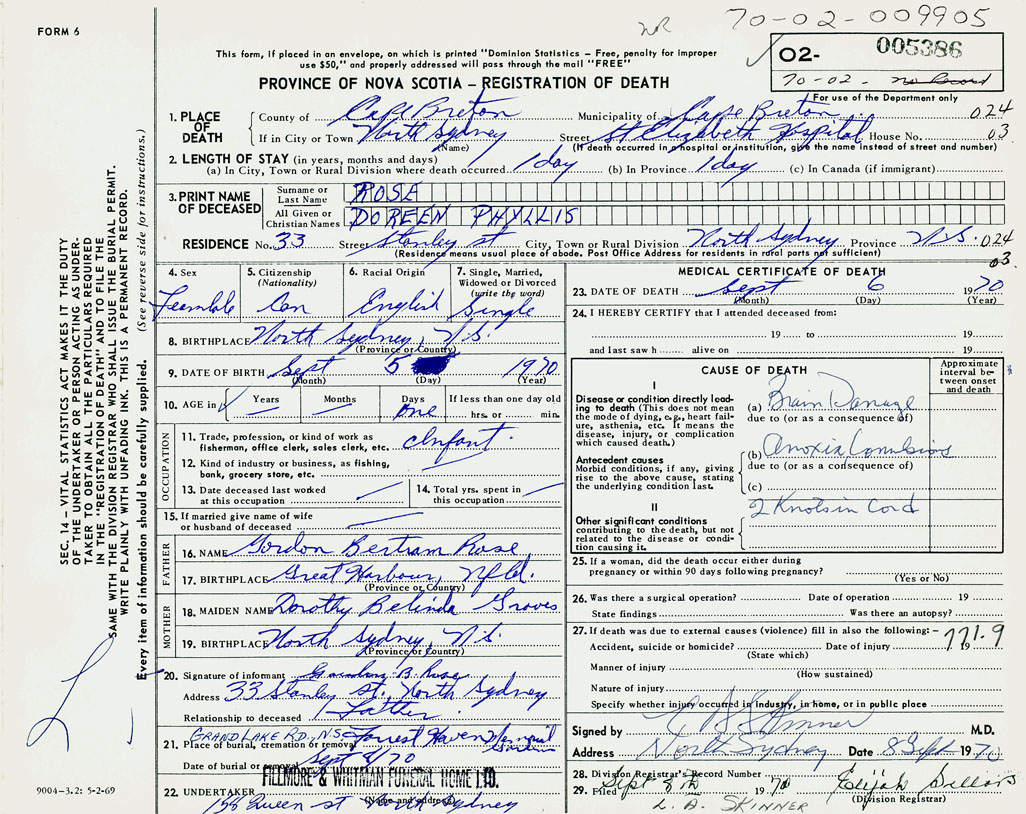 FORM 6
NR 70-02-009905
This form, if placed in an envelope, on which is printed "Dominion Statistics – Free, penalty for improper
use $50," and properly addressed will pass through the mail "FREE"
02- 005386
70-02- no Record
For use of the Department only
PROVINCE OF NOVA SCOTIA – REGISTRATION OF DEATH
1. PLACE OF DEATH
County of Cape Breton Municipality of Cape Breton 024
If in City or Town North Sydney Street St Elizabeth Hospital House No. 03
(Name) (If death occurred in a hospital or institution, give the name instead of street and number)
2. LENGTH OF STAY (in years, months and days)
(a) In City, Town or Rural Division where death occurred 1 day (b) In Province 1 day (c) In Canada (if immigrant)
3. PRINT NAME OF DECEASED
Surname or Last Name ROSE
All Given or Christian Names DOREEN PHYLLIS
RESIDENCE No. 33 Street Stanley st City, Town or Rural Division North Sydney Province N.S. 024
(Residence means usual place of abode. Post Office Address for residents in rural parts not sufficient) 03.
4. Sex 5. Citizenship (Nationality) 6. Racial Origin 7. Single, Married, Widowed or Divorced (write the word)
Feamale Can English Single
8. BIRTHPLACE North Sydney, N.S.
(Province or Country)
9. DATE OF BIRTH Sept 5 1970
(Month) (Day) (Year)
10. AGE in Years Months Days If less than one day old
one hrs. or min.
OCCUPATION
11. Trade, profession, or kind of work as
fisherman, office clerk, sales clerk, etc. Infant.
12. Kind of industry or business, as fishing,
bank, grocery store, etc.
13. Date deceased last worked
at this occupation
14. Total yrs. spent in
this occupation
15. If married give name of wife
or husband of deceased
FATHER
16. NAME Gordon Bertram Rose
17. BIRTHPLACE Great Harbour, Nfld.
(Province or Country)
MOTHER
18. MAIDEN NAME Dorothy Belinda Groves
19. BIRTHPLACE North Sydney, N.S.
(Province or Country)
20. Signature of informant B. Rose
Address 33 Stanley st. North Sydney
Relationship to deceased Father
GRAND LAKE RD., N.S. Forrest Haven
21. Place of burial, cremation or removal
Date of burial or removal Sept 8/70
FILLMORE & WHITMAN FUNERAL HOME LTD.
22. UNDERTAKER (Name and address)
158 Queen st North Sydney
MEDICAL CERTIFICATE OF DEATH
23. DATE OF DEATH Sept 6 1970
(Month) (Day) (Year)
24. I HEREBY CERTIFY that I attended deceased from:
19 to 19
and last saw h alive on 19
CAUSE OF DEATH
Approximate interval between onset and death
I
Disease or condition directly leading
to death (This does not mean
the mode of dying, e.g., heart failure,
asthenia, etc. It means the
disease, injury, or complication
which caused death.)
(a) Brain Damage
due to (or as a consequence of)
Antecedent causes
Morbid conditions, if any, giving
rise to the above cause, stating
the underlying condition last.
(b) Anoxia Convulsions
due to (or as a consequence of)
(c)
II
Other significant conditions
contributing to the death, but not
related to the disease or condition
causing it.
2 Knots in Cord
25. If a woman, did the death occur either during
pregnancy or within 90 days following pregnancy?
(Yes or No)
26. Was there a surgical operation? Date of operation 19
State findings Was there an autopsy?
27. If death was due to external causes (violence) fill in also the following: – 771.9
Accident, suicide or homicide? Date of injury 19
(State which)
Manner of injury
(How sustained)
Nature of injury
Specify whether injury occurred in industry, in home, or in public place
Signed by Skinner M.D.
Address North Sydney Date 8 Sept 1970
28. Division Registrar's Record Number
29. Filed Sept 8th 1970 Elijah
(Division Registrar)
L. A. SKINNER
SEC. 14 – VITAL STATISTICS ACT MAKES IT THE DUTY
OF THE UNDERTAKER OR PERSON ACTING AS UNDERTAKER
TO OBTAIN ALL THE PARTICULARS REQUIRED
IN THE "REGISTRATION OF DEATH" AND TO FILE THE
SAME WITH THE DIVISION REGISTRAR WHO SHALL ISSUE THE BURIAL PERMIT.
WRITE PLAINLY WITH UNFADING INK. THIS IS A PERMANENT RECORD.
Every item of information should be carefully supplied. (See reverse side for instructions.)
9004–3.2: 5-2-69